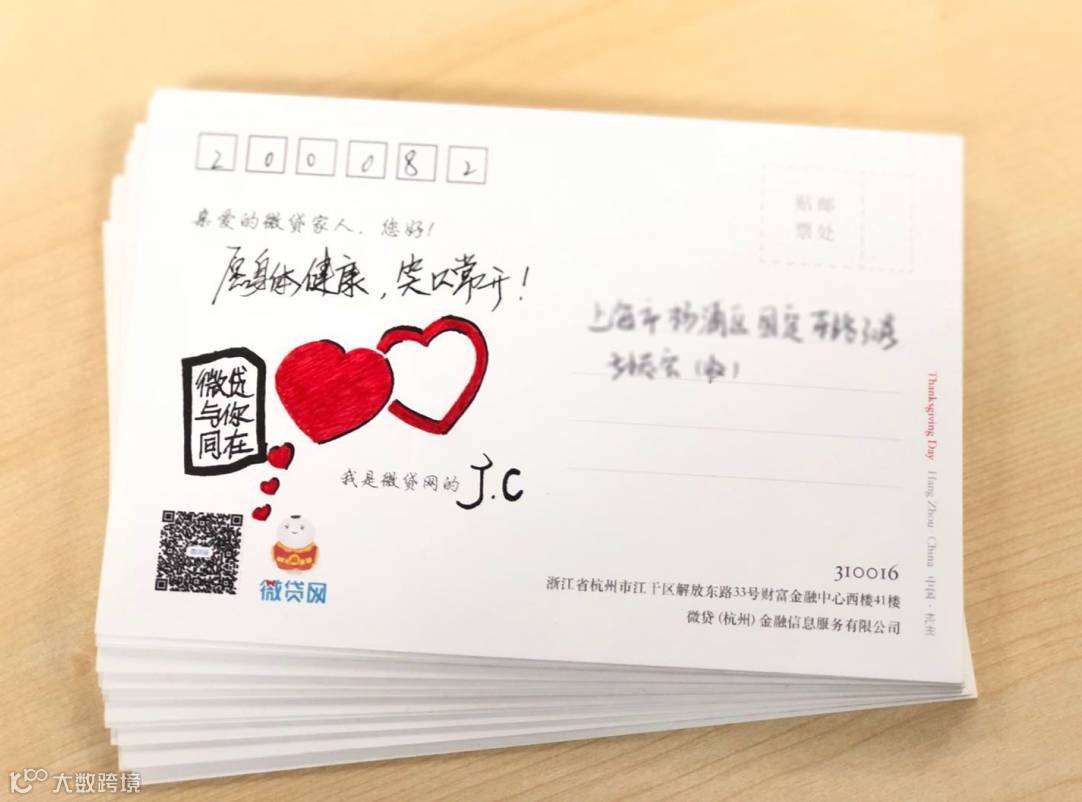 200082
贴邮
票处
亲爱的微贷家人，您好！
愿身体健康，笑口常开！
上海市杨浦区国定
微贷
与你
同在
我是微贷网的J.C
微贷网
310016
浙江省杭州市江干区解放东路33号财富金融中心西楼41楼
微贷(杭州)金融信息服务有限公司
Thanksgiving Day Hang Zhou China 中国·杭州
大数跨境